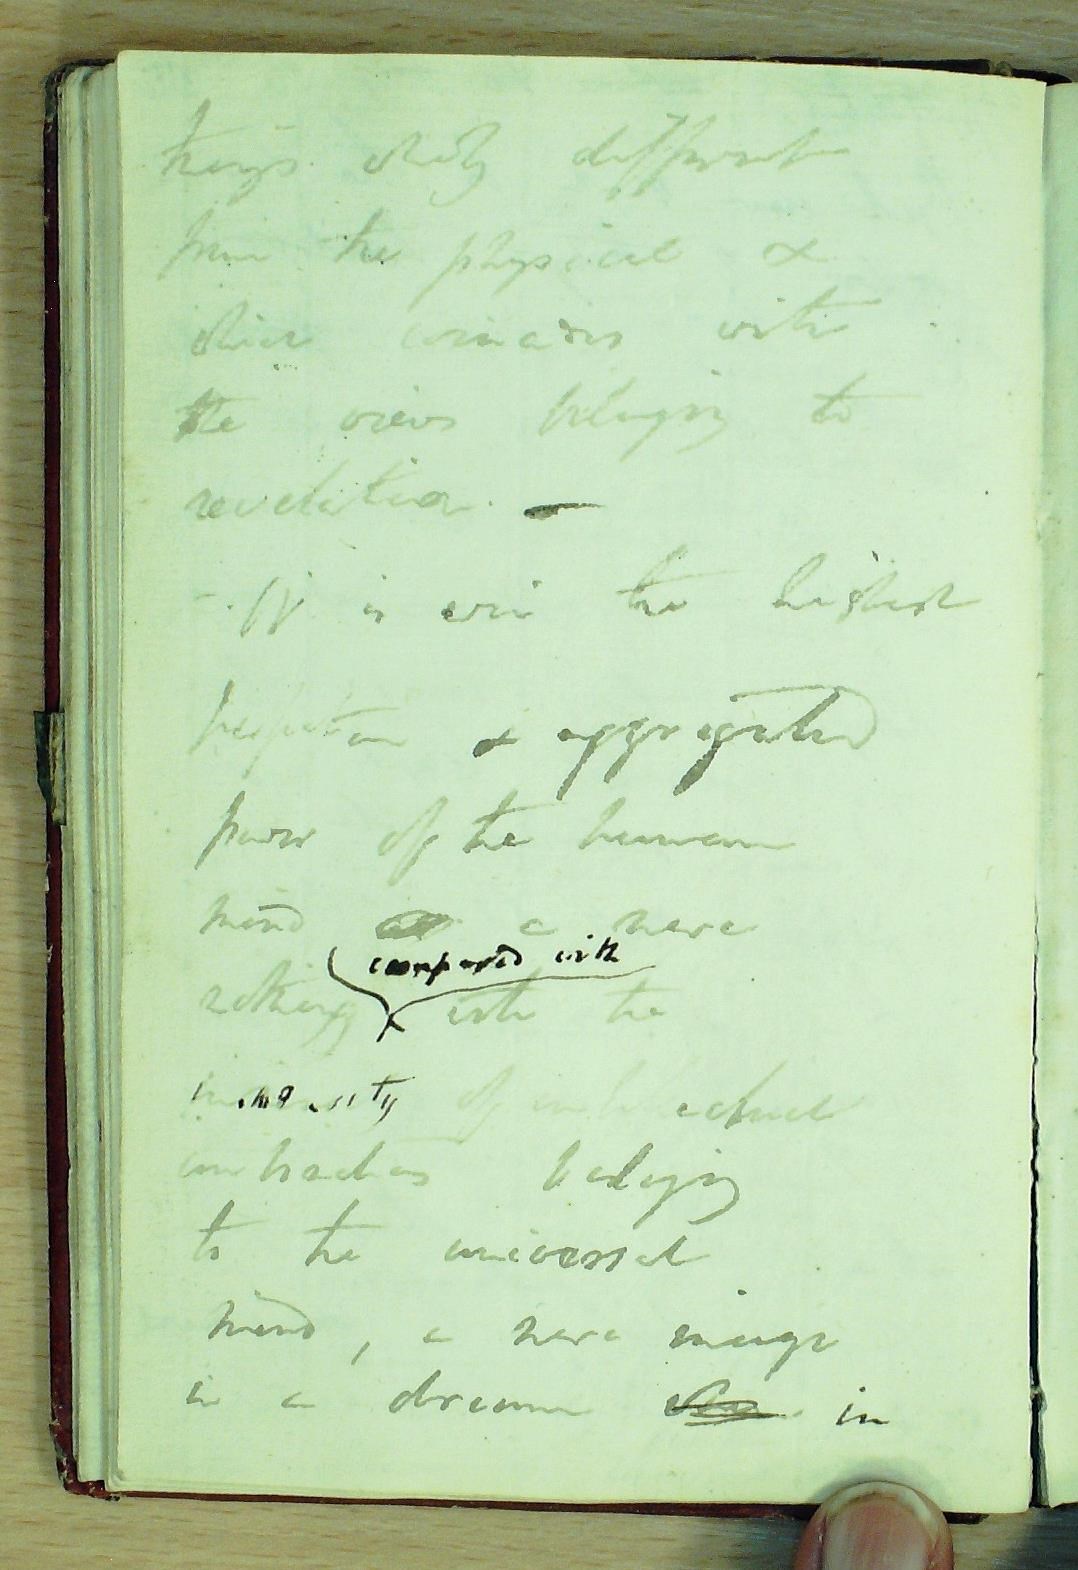 things wholly different
from the physical &
which coincides with
the views belonging to
revelation. —
- is even the highest
perfection & aggregated
power of the human
mind a mere
compared with
nothing with the
immensity of intellectual
combinations belonging
to the universal
mind, a mere image
in a dream in